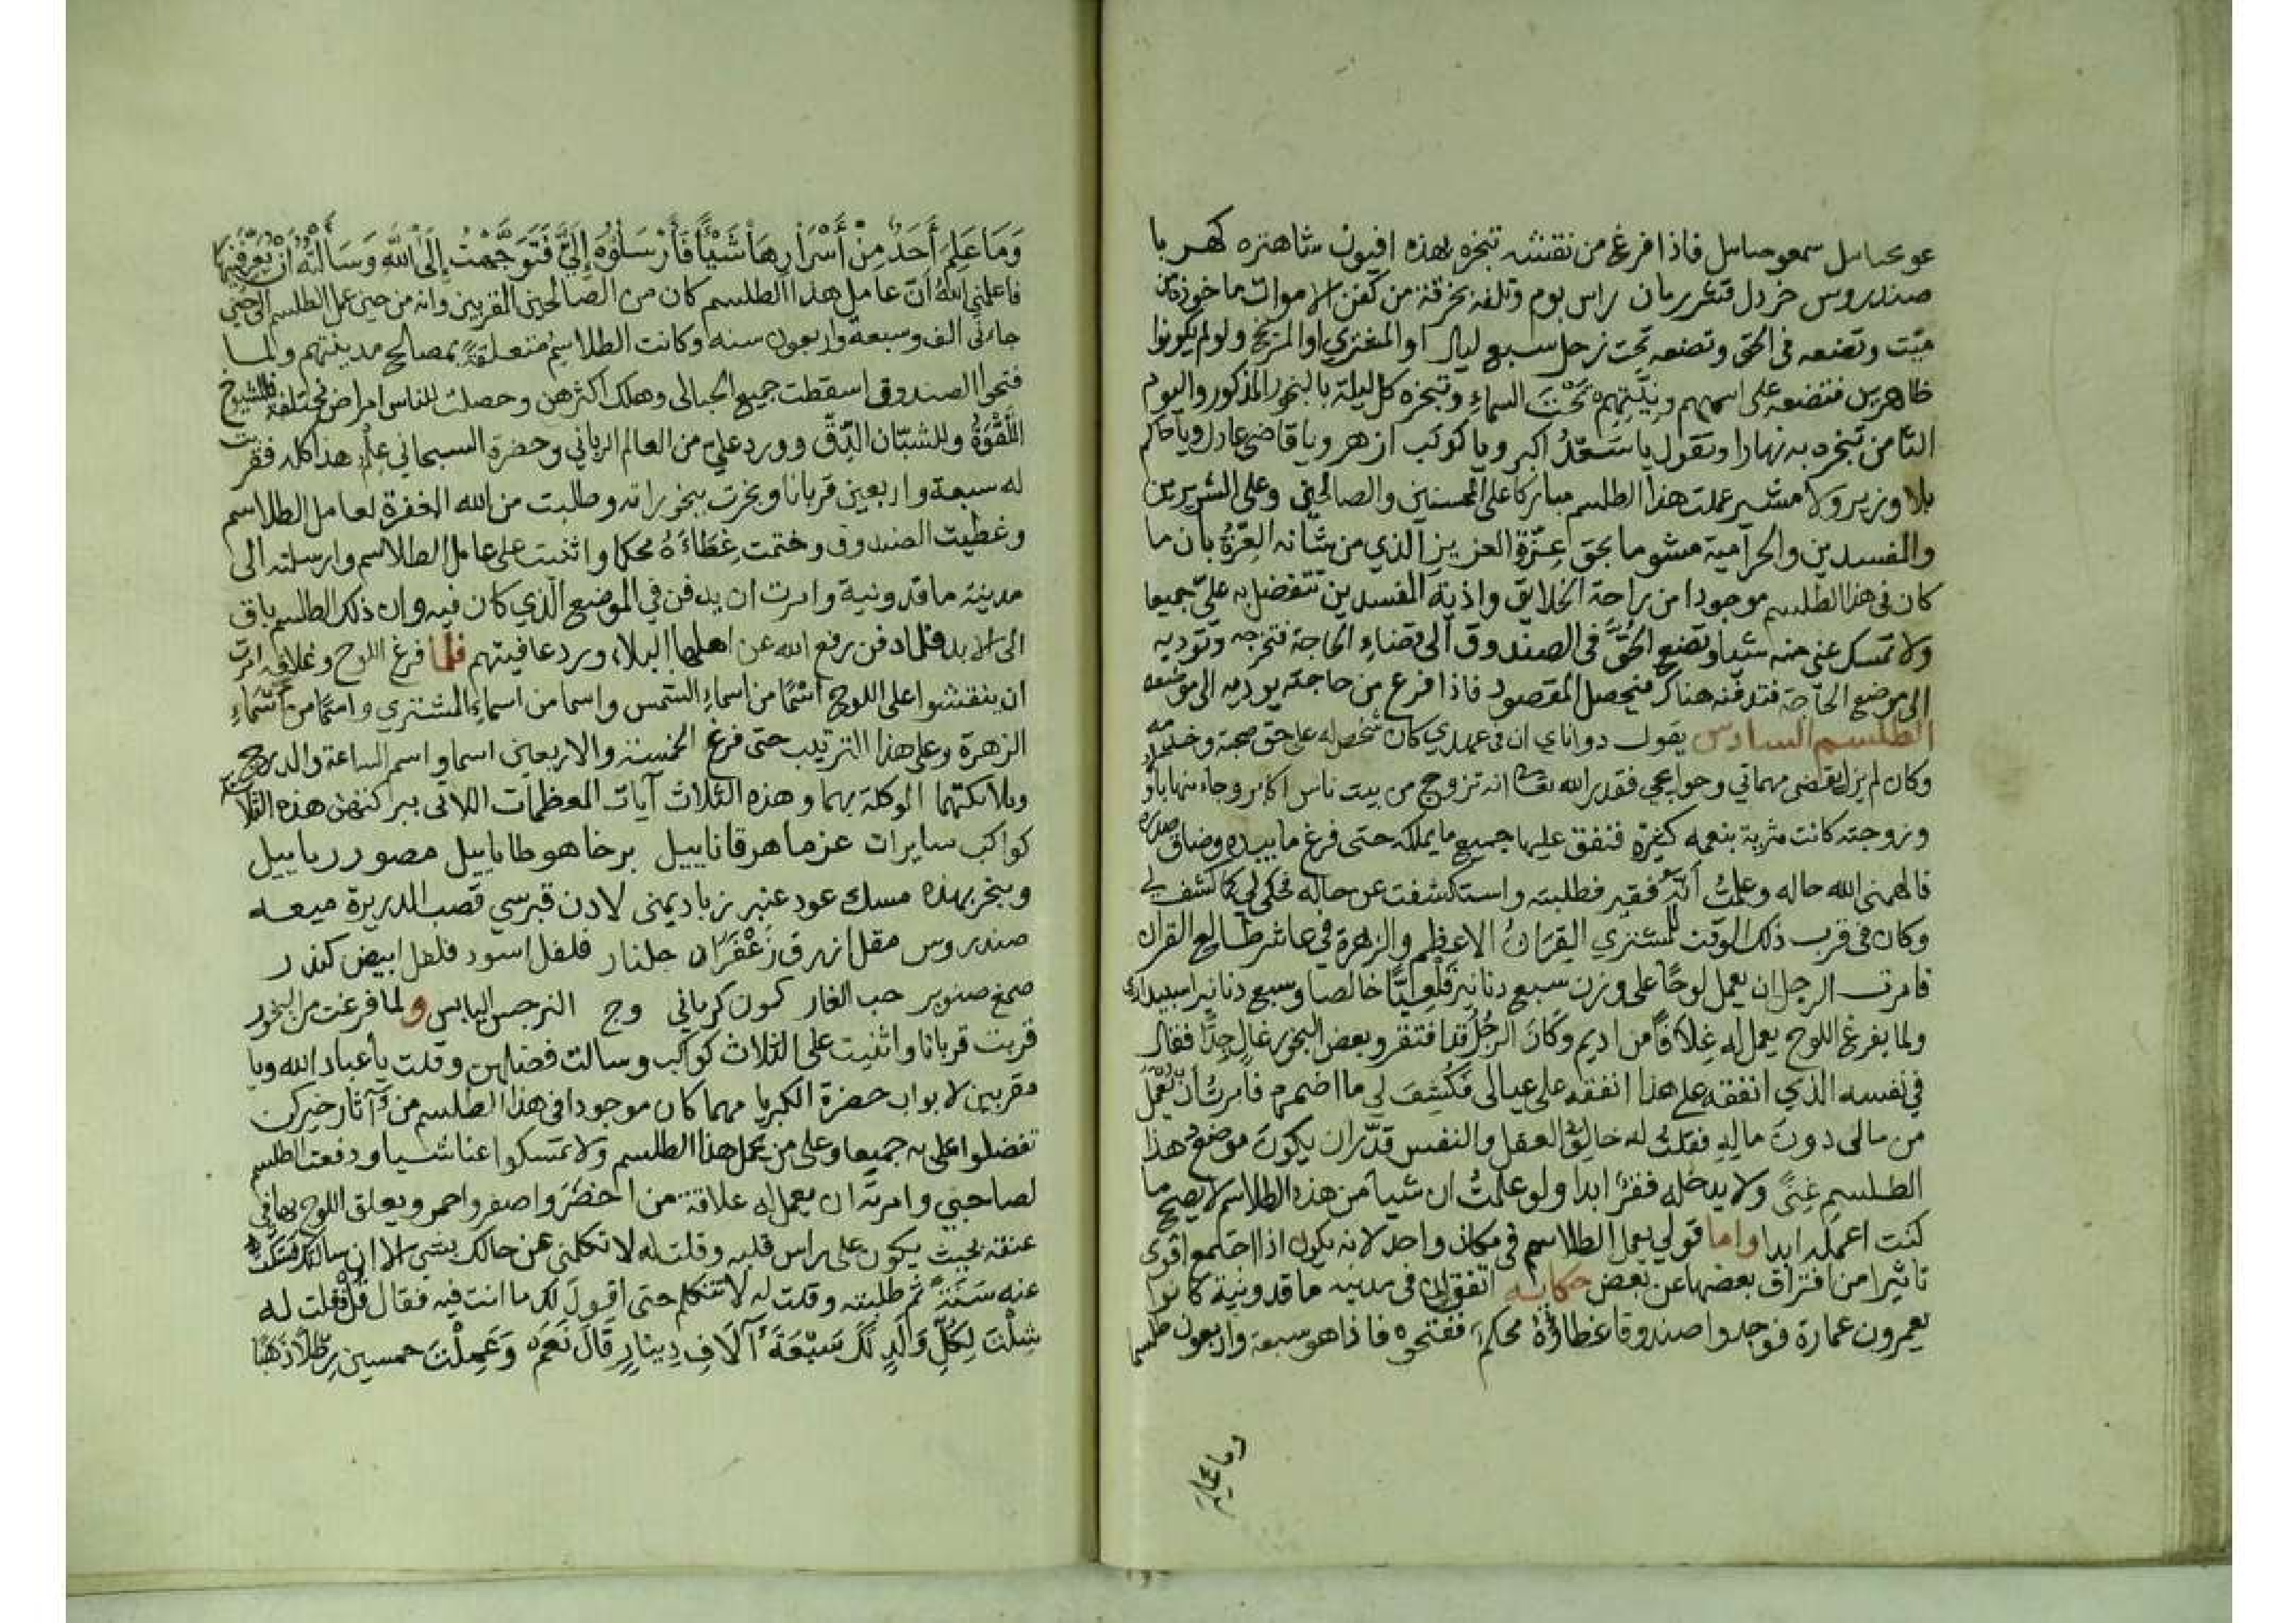 عو محباسل سمعو صاسل فاذا فرغ من نقشه تبخره بهذه افيون شاهتره كهربا
صندروس خردل قشر رمان راس بوم وتلفه بخرقة من كفن الاموات ماخوذة من
ميت وتضعه في الحق وتضعه تحت زحل سبع ليال او المشتري او المريخ ولو لم يكونوا
ظاهرين فتضعه على اسمهم ونيتهم تحت السماء وتبخره كل ليلة بالبخور المذكور واليوم
الثامن تبخره به نهارا وتقول يا سعد اكبر ويا كوكب ازهر ويا قاضي عادل ويا حاكم
بلا وزير ولا مشير عملت هذا الطلسم مباركا على المحسنين والصالحين وعلى الشريرين
والمفسدين والحرامية مشوما بحق عزة العزيز الذي من شانه العزة بان ما
كان في هذا الطلسم موجودا من راحة الخلايق واذية المفسدين تتفضل به علي جميعا
ولا تمسك عني منه شيا وتضع الحق في الصندوق الى قضاء الحاجة فتخرجه وتوديه
الى موضع الحاجة فتدفنه هناك فيحصل المقصود فاذا فرغ من حاجته يوديه الى موضعه
الطلسم السادس يقول دواناي ان في عهدي كان شخص له علي حق صحبة وخدمه
وكان لم يزل يقضي مهماتي وحوايجي فقدر الله تعالى انه تزوج من بيت ناس اكابر وجاء منها باولاد
وزوجته كانت متربة بنعمه كثيرة فنفق عليها جميع ما يملكه حتى فرغ ما بيده وضاق صدره
فالهمني الله حاله وعلمت انه فقير فطلبته واستكشفت عن حاله فحكى لي كما كشف لي
وكان في قرب ذلك الوقت للمشتري القران الاعظم والزهرة في عاشر طالع القران
فامرت الرجل ان يعمل لوحا على وزن سبع دنانير قلعيا خالصا وسبع دنانير اسبيداري
ولما يفرغ اللوح يعمل له غلافا من اديم وكان الرجل قد افتقر وبعض البخور غال جدا فقال
في نفسه الذي انفقه على هذا انفقه على عيالي فكشف لي ما اضمره فامرت ان يعمل
من مالي دون ماله فقلت له خالق العقل والنفس قدر ان يكون موضع هذا
الطلسم غنى ولا يدخله فقر ابدا ولو علمت ان شيا من هذه الطلاسم لا يصح ما
كنت اعمله ابدا واما قولي يعمل الطلاسم في مكان واحد لانه يكون اذا اجتمع اقوى
تاثيرا من افتراق بعضها عن بعض حكاية اتفق ان في مدينه ماقدونية كانوا
يعمرون عمارة فوجدوا صندوقا غطاؤه محكم ففتحوه فاذا هو سبعة واربعون طلسما
وما علم
وما علم أحد من أسرارها شيئا فأرسلوه إلي فتوجهت إلى الله وسألته أن يعرفنيها
فاعلمني الله أن عامل هذا الطلسم كان من الصالحين المقربين وانه من حين عمل الطلسم الى حين
جاءني الف وسبعة واربعون سنه وكانت الطلاسم متعلقة بمصالح مدينتهم ولما
فتحوا الصندوق اسقطت جميع الحبالى وهلك اكثرهن وحصلت للناس امراض مختلفة فللشيوخ
اللقوة وللشبان الدق وورد علي من العالم الرباني وحضرة السبحاني علم هذا كله فقربت
له سبعة واربعين قربانا وبخرت ببخوراته وطلبت من الله المغفرة لعامل الطلاسم
وغطيت الصندوق وختمت غطاءه محكما واثنيت على عامل الطلاسم وارسلته الى
مدينة ماقدونية وامرت ان يدفن في الموضع الذي كان فيه وان ذلك الطلسم باق
الى الابد فلما دفن رفع الله عن اهلها البلاء ورد عافيتهم فلما فرغ اللوح وغلافه امرت
ان ينقشوا على اللوح اسما من اسماء الشمس واسما من اسماء المشتري واسما من أسماء
الزهرة وعلى هذا الترتيب حتى فرغ الخمسة والاربعين اسما واسم الساعة والدرج
وملائكتهما الموكلة بهما وهذه الثلاث آيات المعظمات اللاتي ببراكتهن هذه الثلاث
كواكب سايرات عزما هرقاناييل برخاهو طاباييل مصور رياييل
وبخر بهذه مسك عود عنبر زباد يمني لادن قبرسي قصب الدريرة ميعه
صندروس مقل ازرق زعفران جلنار فلفل اسود فلفل ابيض كندر
صمغ صنوبر حب الغار كمون كرماني وج النرجس اليابس ولما فرغت من البخور
قربت قربانا واثنيت على الثلاث كواكب وسالت فضلهن وقلت يا عباد الله ويا
مقربين لابواب حضرة الكبريا مهما كان موجودا في هذا الطلسم من آثار خيركن
تفضلوا علي به جميعا وعلى من يحمل هذا الطلسم ولا تمسكوا عنا شيا ودفعت الطلسم
لصاحبي وامرته ان يعمل له علاقة من اخضر واصفر واحمر ويعلق اللوح بها في
عنقه بحيث يكون على راس قلبه وقلت له لا تكلمني عن حالك بشي الا ان سالتك فسكت
عنه سنة ثم طلبته وقلت له لا تتكلم حتى اقول لك ما انت فيه فقال قل فقلت له
شلت لكل ولد لك سبعة آلاف دينار قال نعم وعملت خمسين رطلا ذهبا